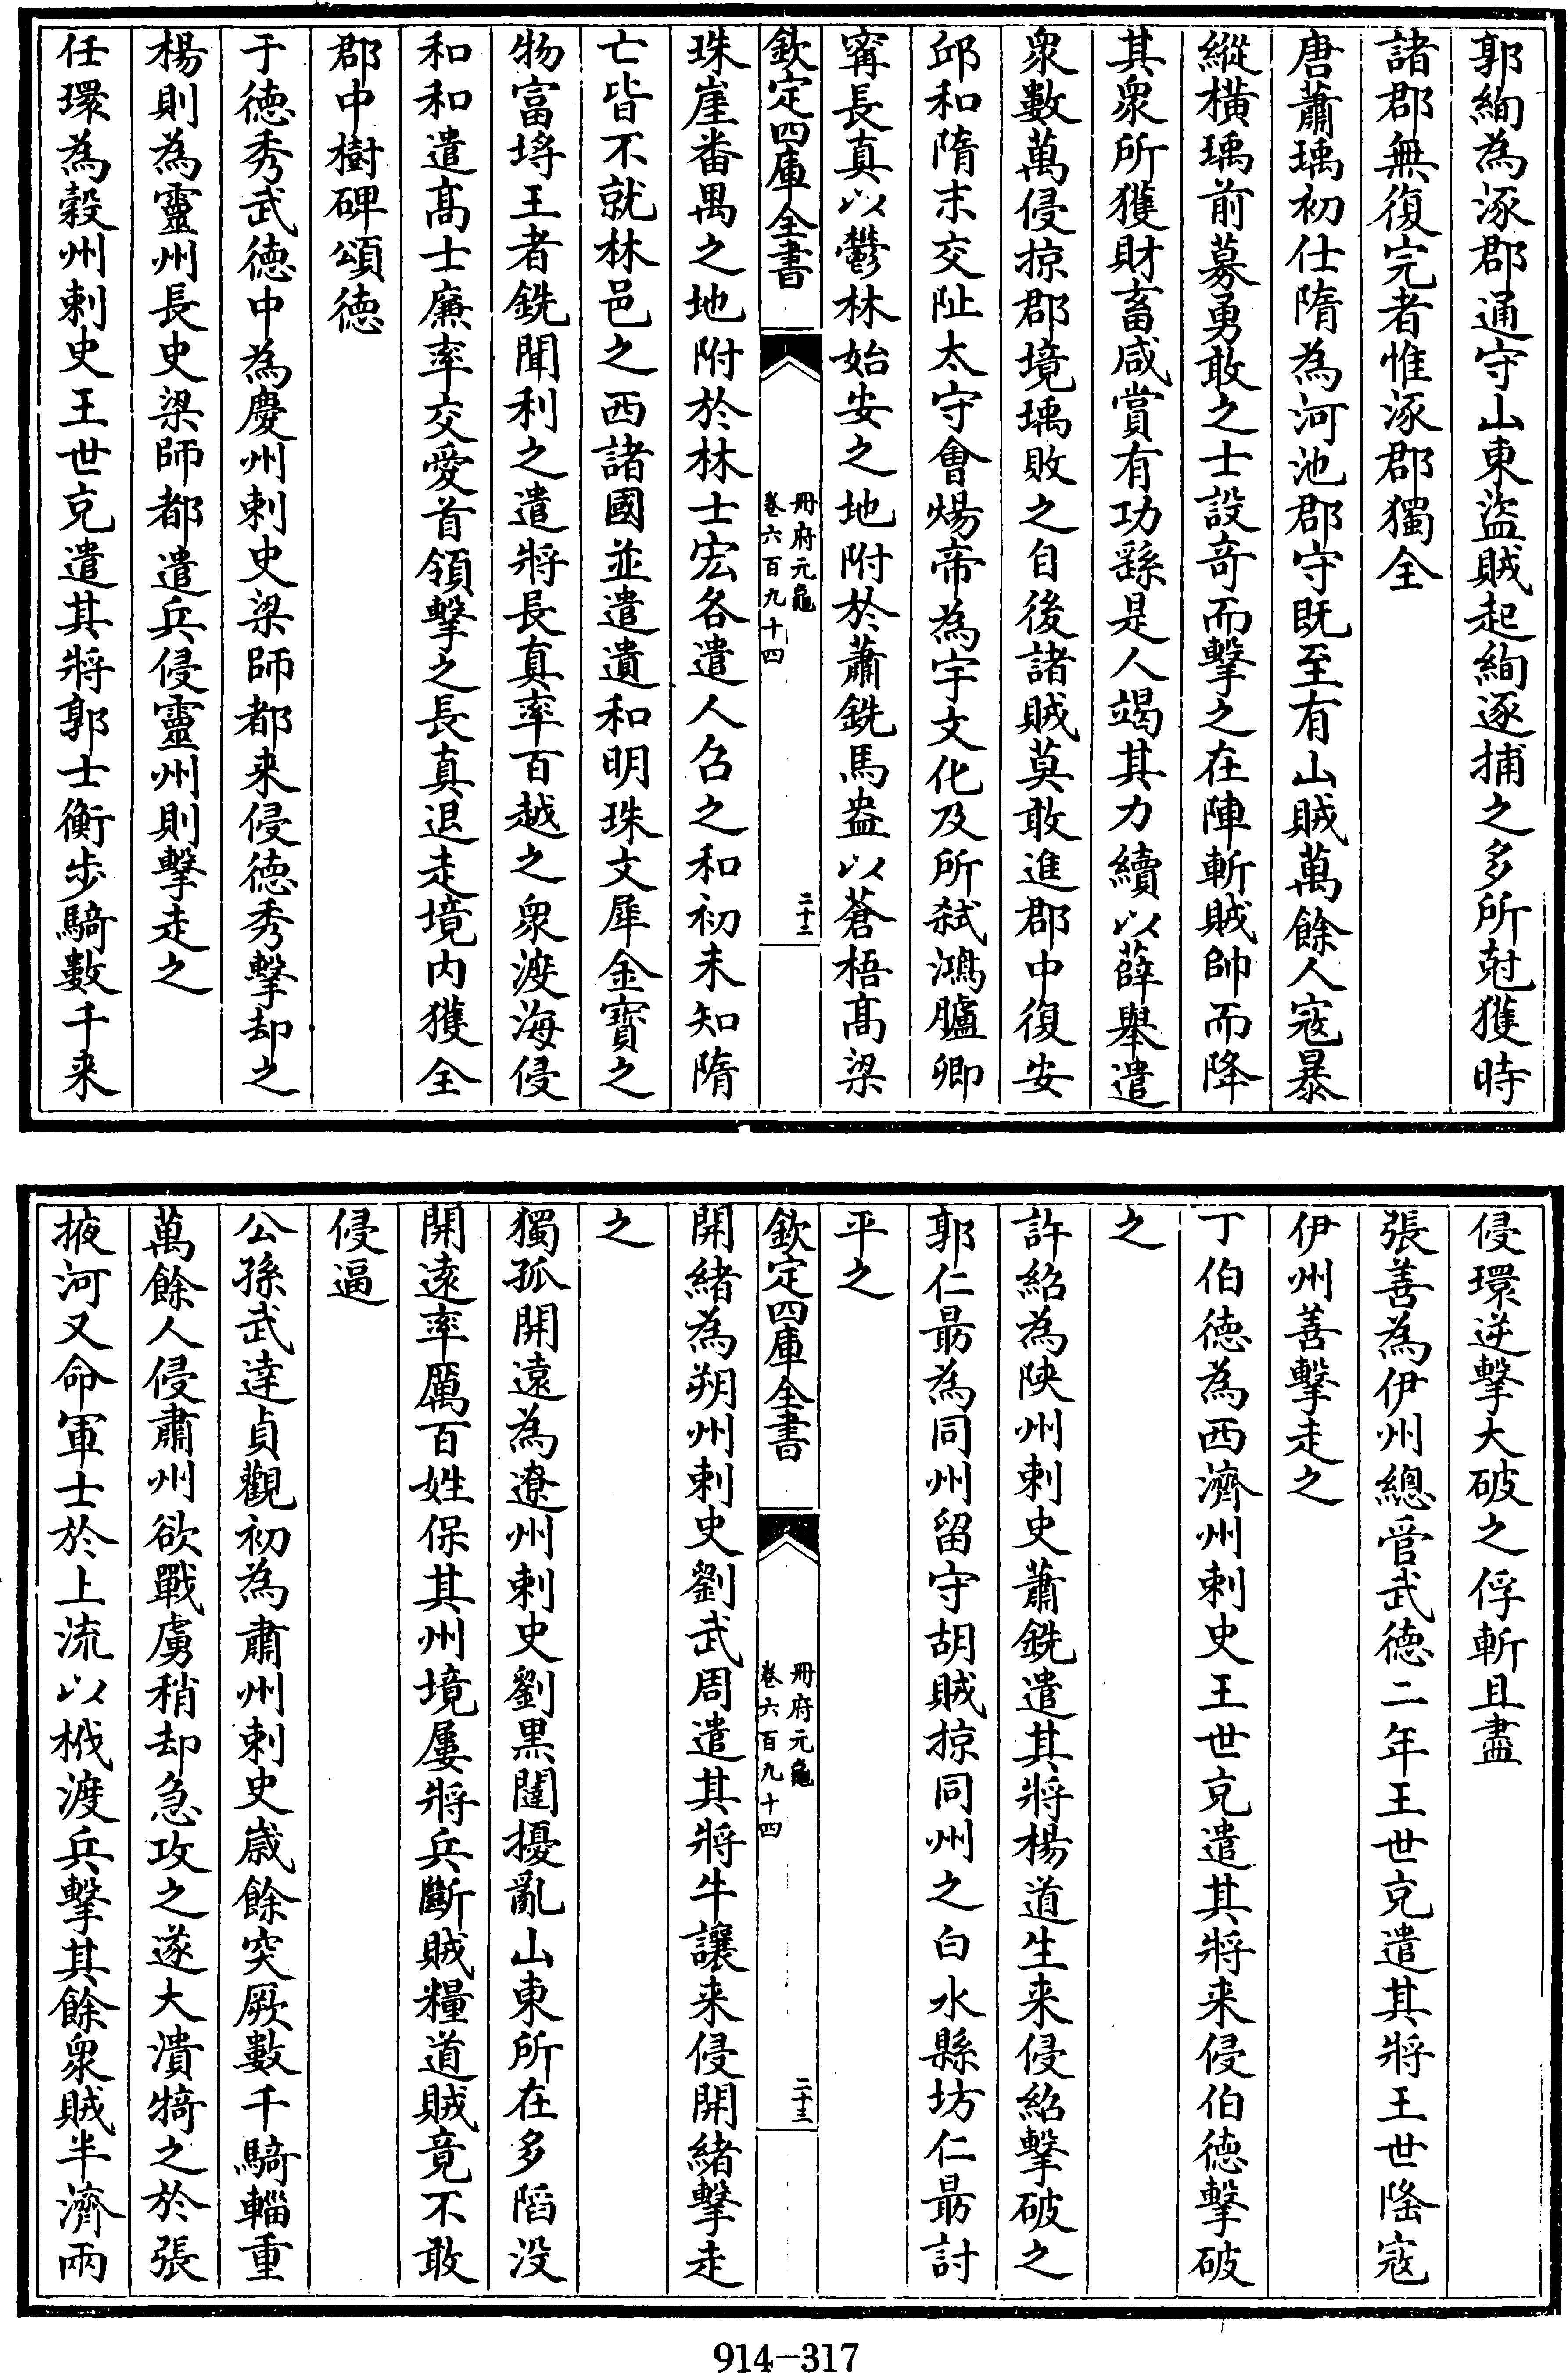 郭絢為涿郡通守山東盜賊起絢逐捕之多所尅獲時
諸郡無復完者惟涿郡獨全
唐蕭瑀初仕隋為河池郡守既至有山賊萬餘人寇暴
縱橫瑀前募勇敢之士設奇而擊之在陣斬賊帥而降
其衆所獲財畜咸賞有功繇是人竭其力續以薛舉遣
衆數萬侵掠郡境瑀敗之自後諸賊莫敢進郡中復安
邱和隋末交阯太守會煬帝為宇文化及所弑鴻臚卿
寗長真以鬱林始安之地附於蕭銑馬盎以蒼梧髙梁
欽定四庫全書
冊府元龜
卷六百九十四
二十二
珠崖番禺之地附於林士宏各遣人召之和初未知隋
亡皆不就林邑之西諸國並遣遺和明珠文犀金寳之
物富埒王者銑聞利之遣將長真率百越之衆渡海侵
和和遣髙士廉率交愛首領擊之長真退走境内獲全
郡中樹碑頌徳
于徳秀武徳中為慶州刺史梁師都来侵徳秀擊却之
楊則為靈州長史梁師都遣兵侵靈州則擊走之
任環為穀州刺史王世充遣其將郭士衡步騎數千来
侵環逆擊大破之俘斬且盡
張善為伊州總管武徳二年王世充遣其將王世隆寇
伊州善擊走之
丁伯徳為西濟州刺史王世充遣其將来侵伯徳擊破
之
許紹為陜州刺史蕭銑遣其將楊道生来侵紹擊破之
郭仁勗為同州留守胡賊掠同州之白水縣坊仁勗討
平之
欽定四庫全書
冊府元龜
卷六百九十四
二十三
開緒為朔州刺史劉武周遣其將牛讓来侵開緒擊走
之
獨孤開遠為遼州刺史劉黒闥擾亂山東所在多䧟没
開逺率厲百姓保其州境屢將兵斷賊糧道賊竟不敢
侵逼
公孫武達貞觀初為肅州刺史歳餘突厥數千騎輜重
萬餘人侵肅州欲戰虜稍却急攻之遂大潰犄之於張
掖河又命軍士於上流以栰渡兵擊其餘衆賊半濟兩
914-317